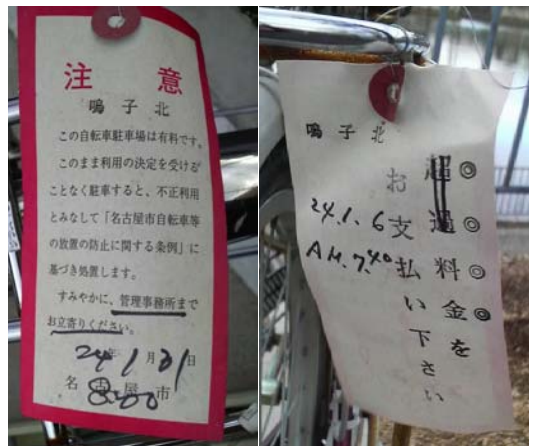 注意
鳴子北
この自転車駐車場は有料です。
このまま利用の決定を受ける
ことなく駐車すると、不正利用
とみなして「名古屋市自転車等
の放置の防止に関する条例」に
基づき処置します。
すみやかに、管理事務所まで
お立寄りください。
24年1月21日
名古屋市
8:00
鳴子北
◎◎◎◎
超過料金を
お支払い下さい
24.1.6
AM.7.40